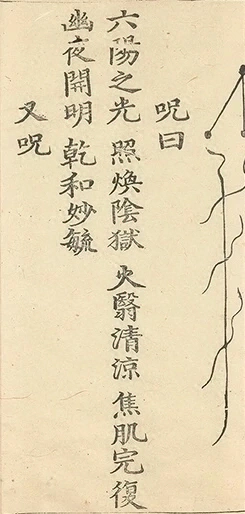 呪曰
六陽之光 照煥陰獄 火翳清涼 焦肌完復
幽夜開明 乾和妙毓
又呪